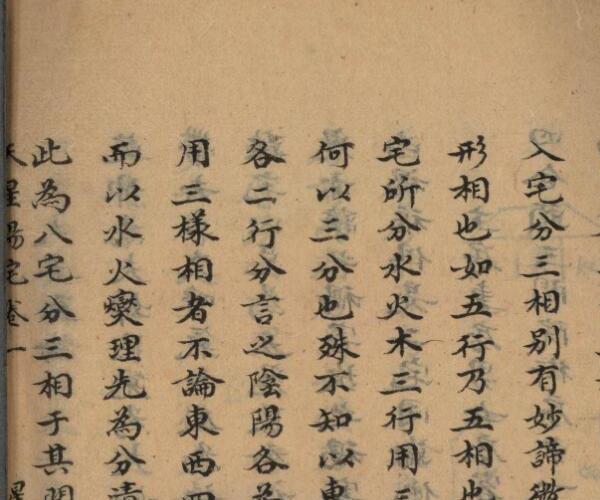 入宅分三相別有妙諦
形相也如五行乃五相也
宅所分水火木三行用三
何以三分也殊不知以東
各二行分言之陰陽各為
用三樣相者不論東西四
而以水火爕理先為分清
此為八宅分三相于其間
天星陽宅卷一